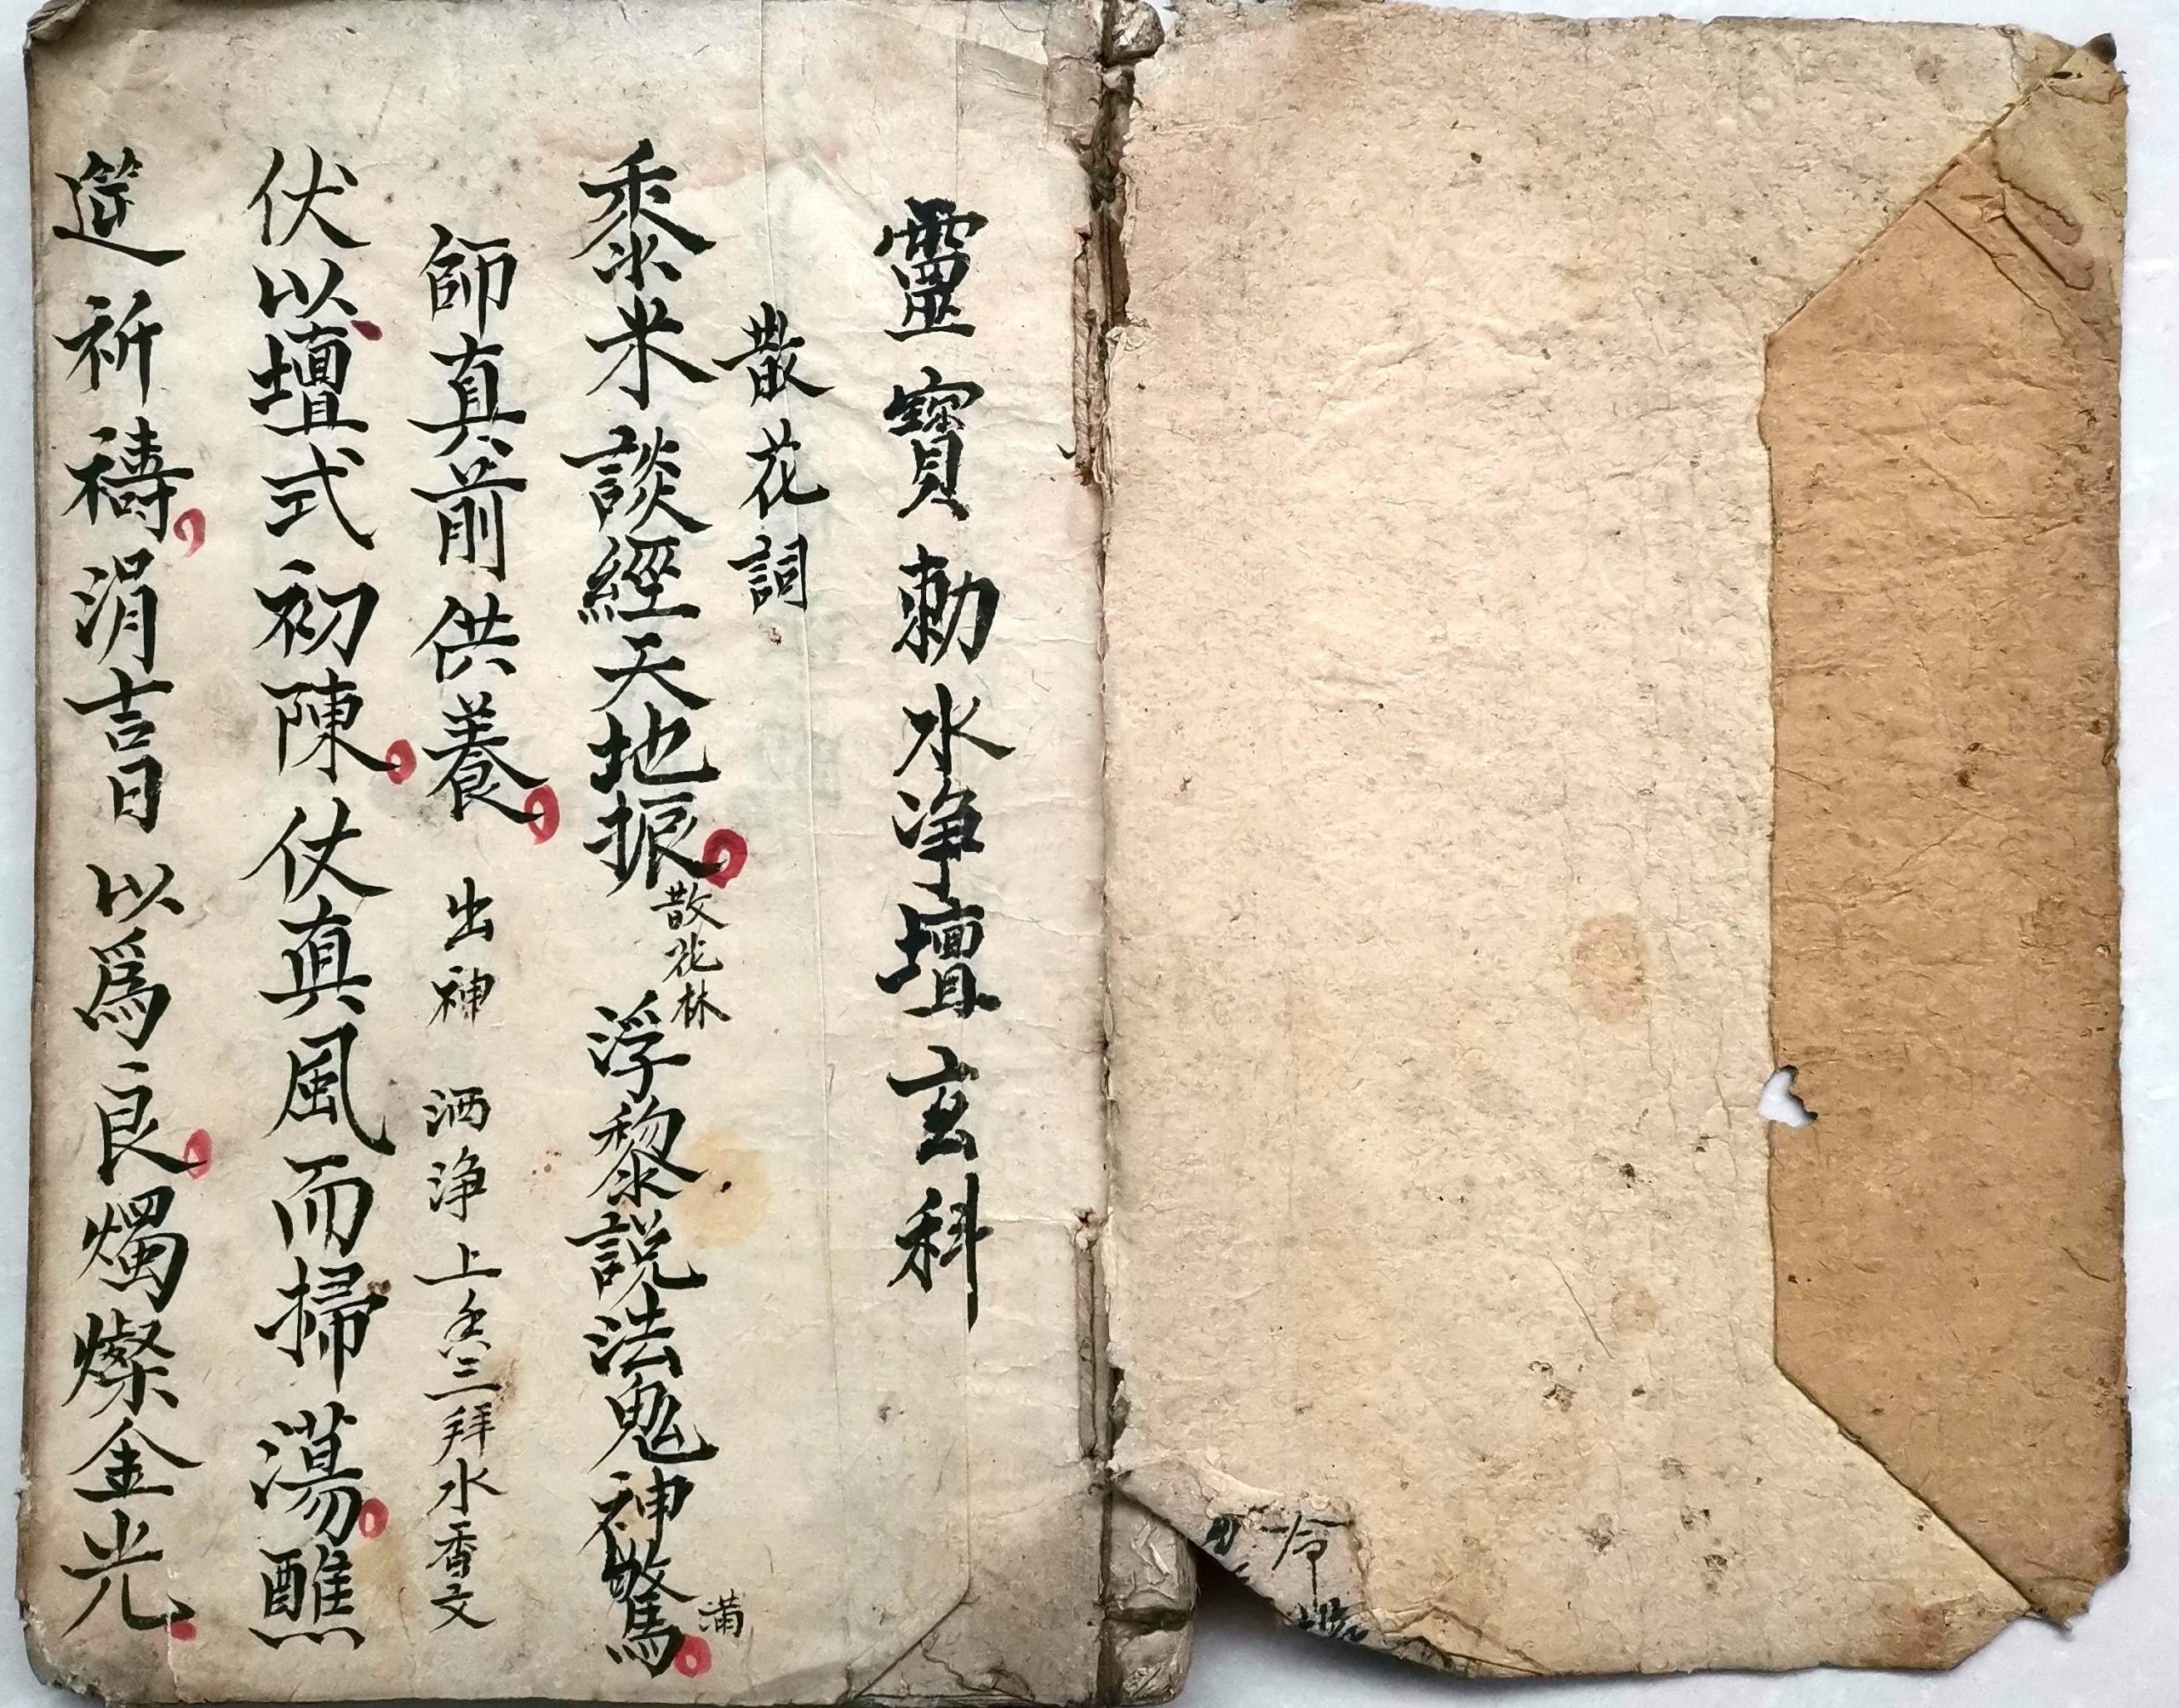 靈寶勅水净壇玄科
散花詞
黍米談經天地振散花林 浮黎説法鬼神驚 滿
師真前供養 出神 洒净上香三拜水香文
伏以壇式初陳仗真風而掃蕩醮
筵祈禱涓吉日以爲良燭燦金光
令